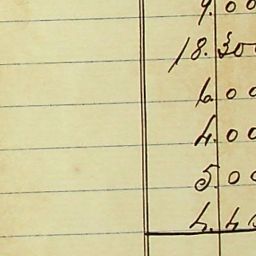 9.00
18.300
6.00
4.00
5.00
4.40